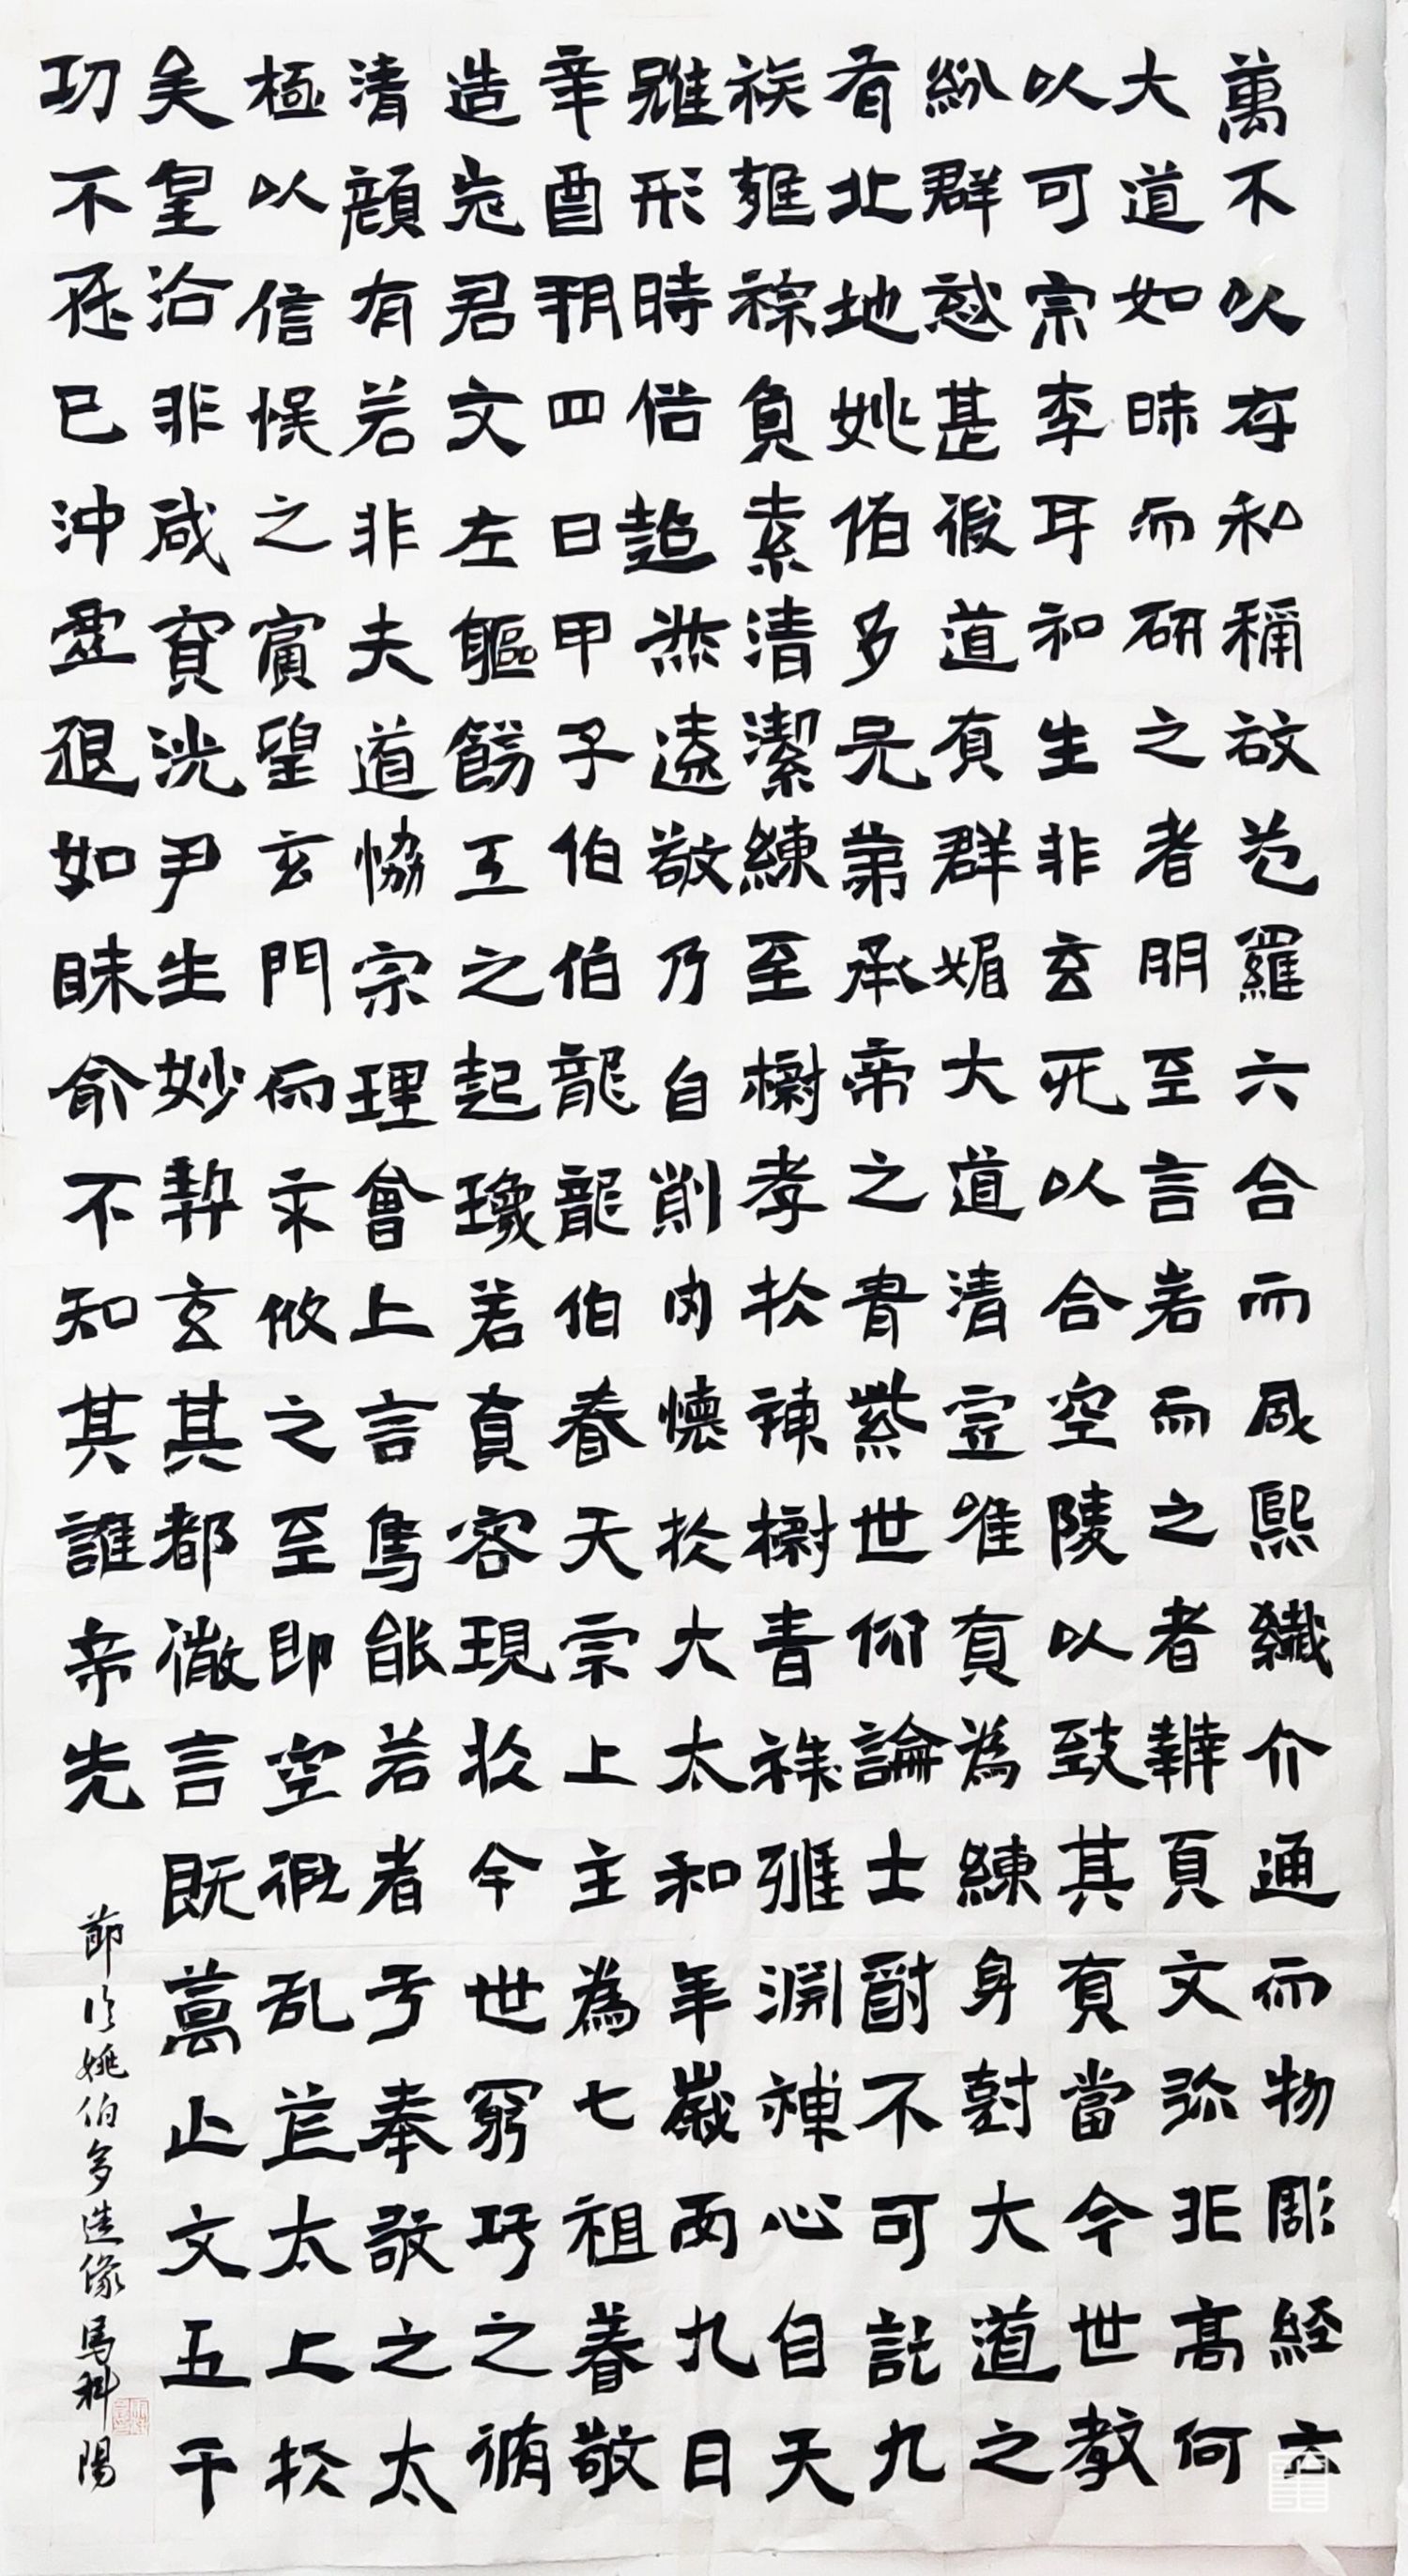 萬不以存和稱故苞羅六合而咸熙纖介通而物彫經云
大道如昧而研之者明至言若而之者韡真文弥非高何
以可宗李耳和生非玄死以合空陵以致其真當今世教
紛群惑甚假道真群媚大道清虛唯真為練身封大道之
有北地姚伯多兄弟承帝之胄紫世仰論士酎不可託九
族雍穆負素清潔練至樹孝於神樹青祩雍淵神心自天
雖形時俗超然遠敬乃自削肉懷於大太和年歲丙九日
辛酉朔四日甲子伯伯龍龍伯養天宗上主為七祖養敬
造老君文左軀餝工之起瓊若真容現於今世窮巧之徇
清顏有若非夫道協宗理會上言焉能若者于奉敬之太
極以信悮之賓望玄門而求攸之至即空祇乱並太上於
矣皇洽非咸寶洸尹生妙契玄其都徹言既萬止文五千
功不丕已沖靈退如昧俞不知其誰帝先
節臨姚伯多造像 馬科陽